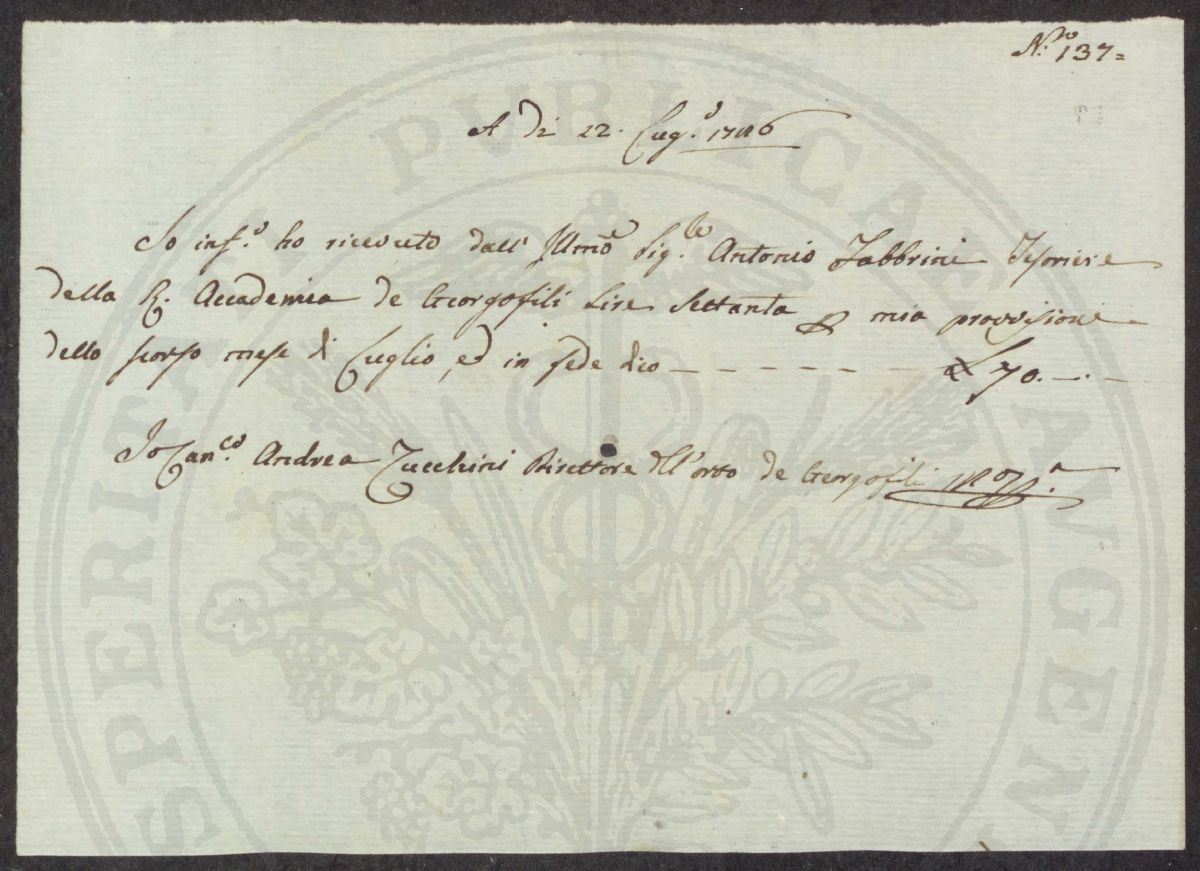 N.ro 137=
A dì 22. Lug.o 1786
Io inf.o ho ricevuto dall' Illmo Sig.re Antonio Fabbrini Tesoriere
della R. Accademia de Georgofili Lire Settanta p mia provvisione
dello scorso mese di Luglio, ed in fede dico — — — — — — — £ 70.—.—
Io Can.co Andrea Zucchini Direttore dll' orto de Georgofili
PVBLICAE
AVGEN
SPERITA